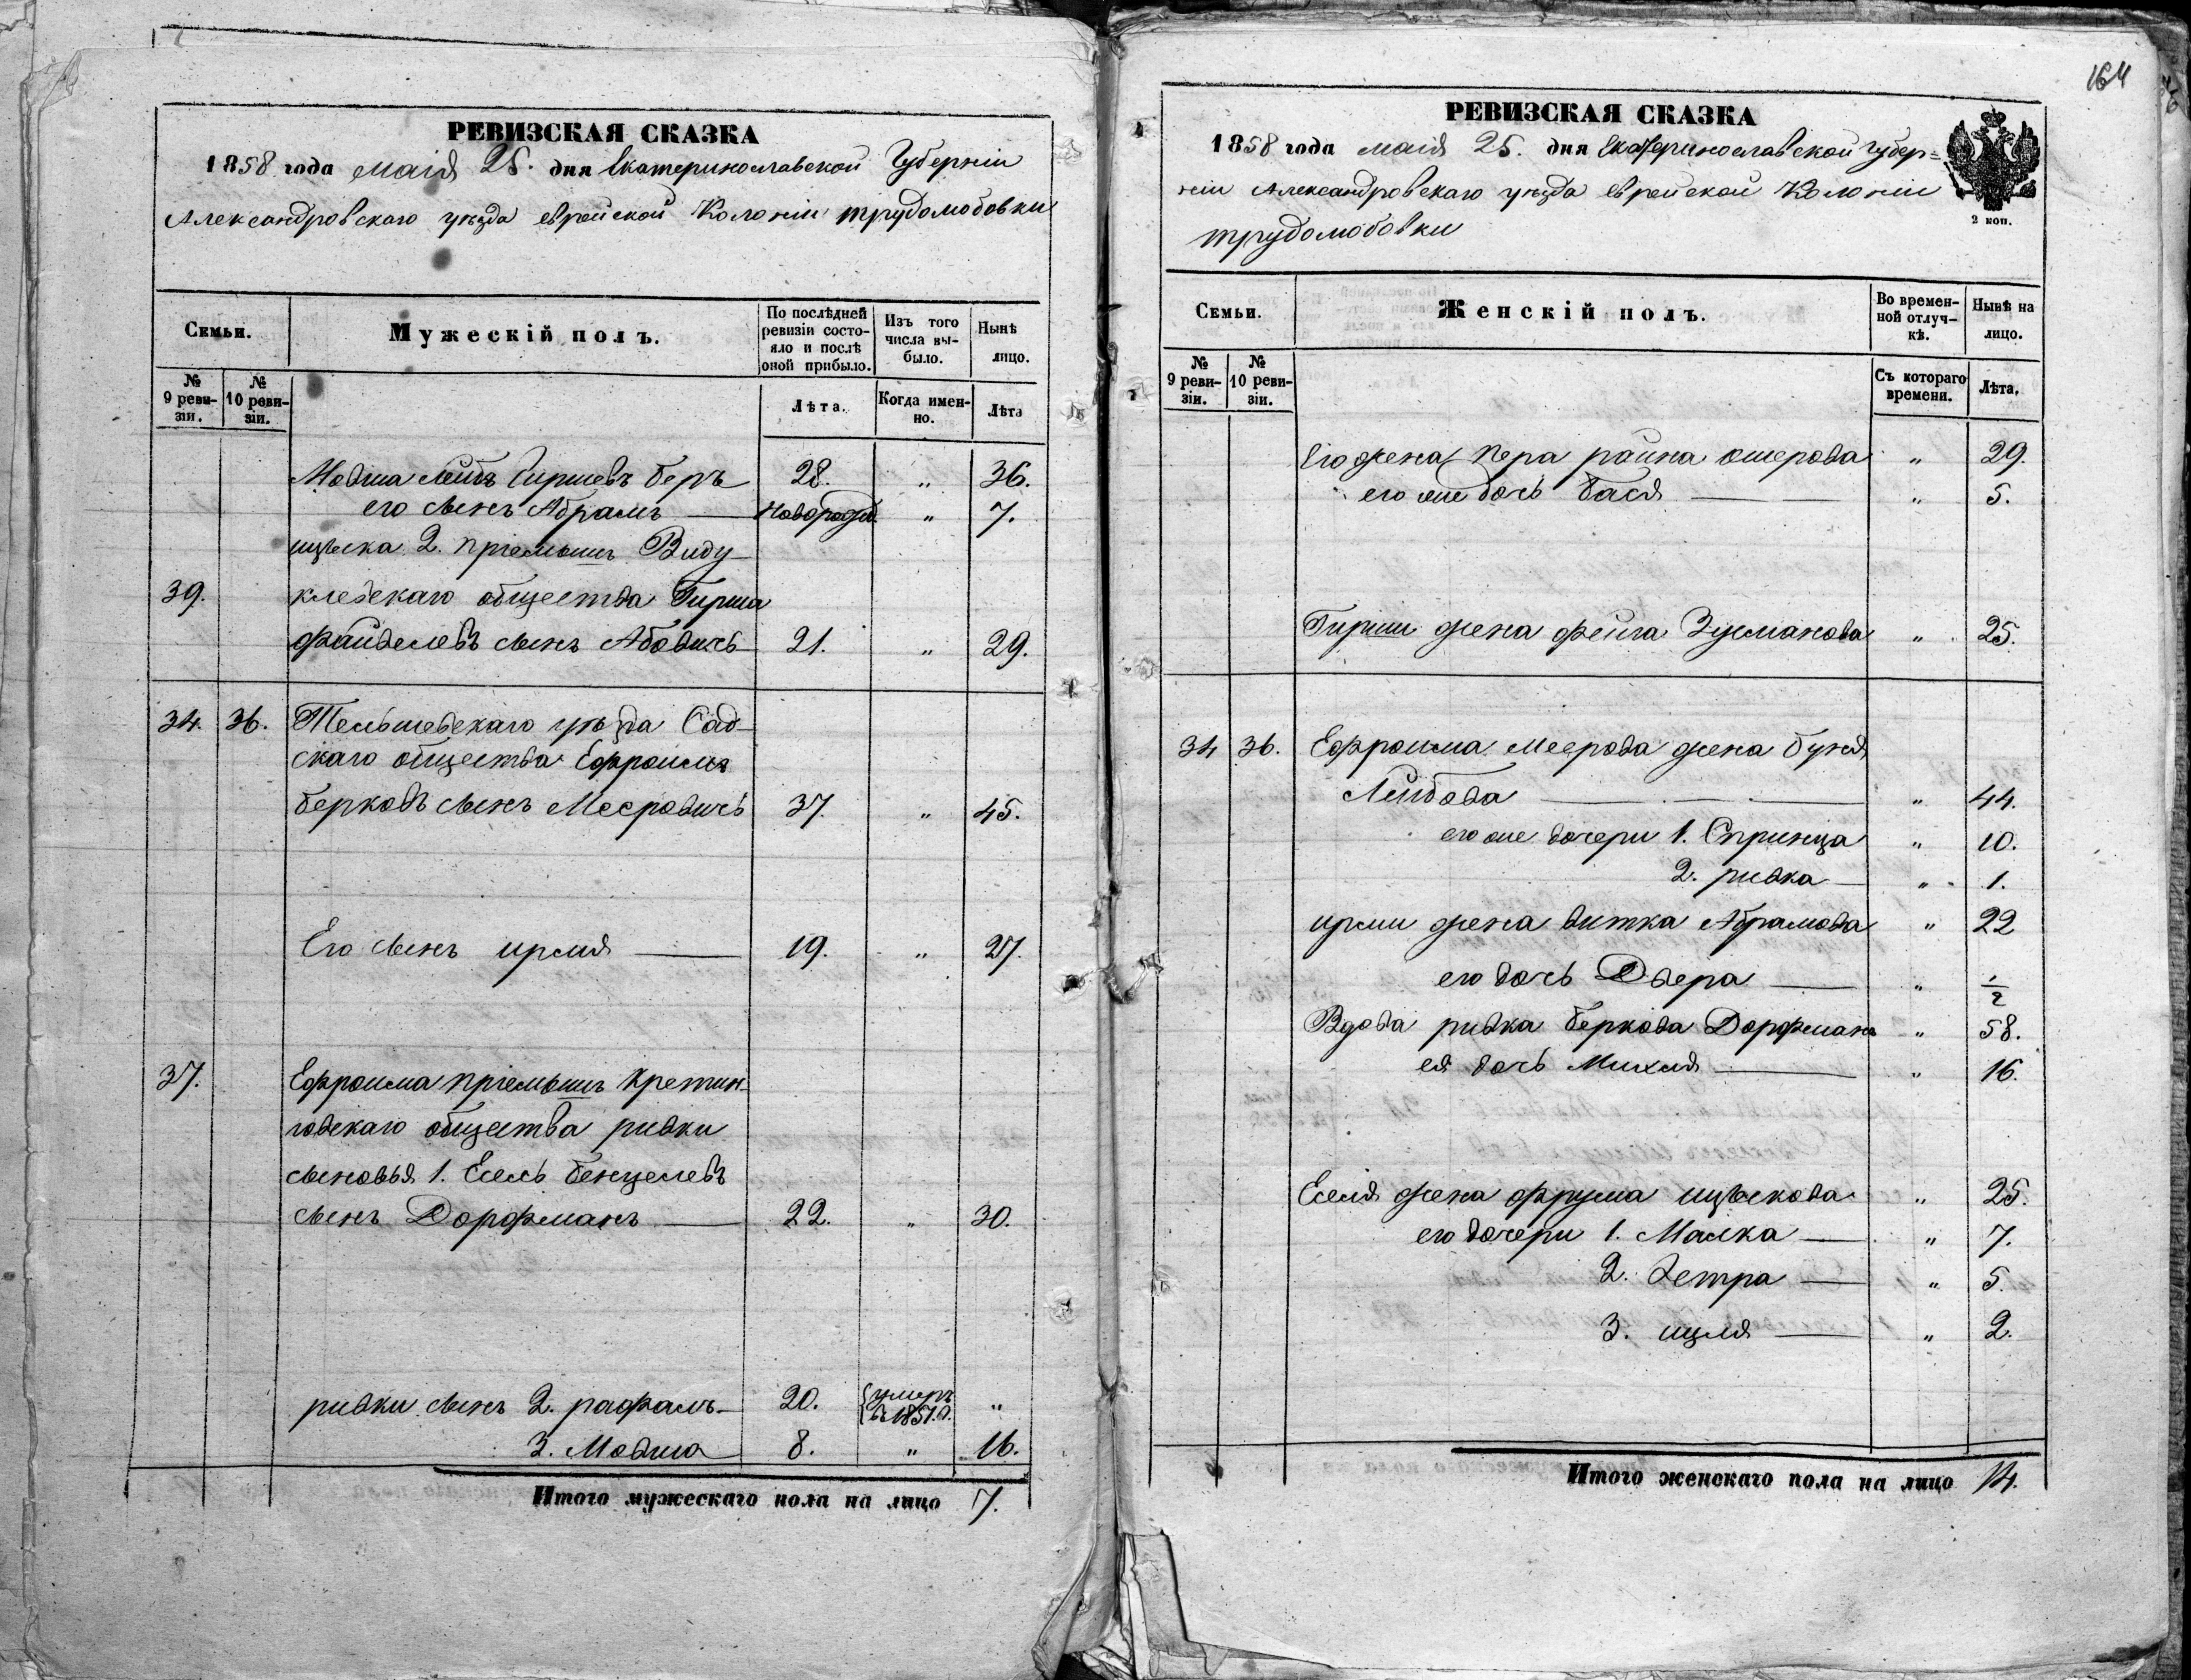 РЕВИЗСКАЯ СКАЗКА
1858 года маія 25. дня Екатеринославской Губерніи
Александровскаго уѣзда еврейской Колоніи трудолюбовки
Семьи.
Мужескій полъ.
По послѣдней ревизіи состо-
яло и послѣ оной прибыло.
Изъ того числа вы-
было.
Нынѣ лицо.
№ 9 реви-
зіи.
№ 10 реви-
зіи.
Лѣта.
Когда имен-
но.
Лѣта
Мовша Лейбъ Гиршевъ беръ 28. " 36.
его сынъ Абрамъ новорожд. " 7.
ицъска 2. пріемышъ Виду-
39. клевскаго общества Гирша
файвелевъ сынъ Абовичь 21. " 29.
34. 36. Тельшевскаго уѣзда Сад-
скаго общества Ефроимъ
берковъ сынъ Мееровичь 37. " 45.
Его сынъ ирмя 19. " 27.
37. Ефроима пріемышъ Кретин-
говскаго общества ривки
сыновья 1. Есель бенцелевъ
сынъ Дорфманъ 22. " 30.
ривки сынъ 2. рафалъ 20. умеръ в 1851.г. "
3. Мовша 8. " 16.
Итого мужескаго пола на лицо 7.
164
РЕВИЗСКАЯ СКАЗКА
1858 года маія 25. дня Екатеринославской губер=
ніи Александровскаго уѣзда еврейской Колоніи
трудолюбовки
2 коп.
Семьи.
Женскій полъ.
Во времен-
ной отлуч-
кѣ.
Нынѣ на лицо.
№ 9 реви-
зіи.
№ 10 реви-
зіи.
Съ котораго времени.
Лѣта.
Его жена Пера райна ошерова " 29.
его же дочь бася " 5.
Гирши жена фейга Зусманова " 25.
34 36. Ефроима Меерова жена буня
Лейбова " 44.
его же дочери 1. Спринца " 10.
2. ривка " 1.
ирми жена витка Абрамова " 22
его дочь Двера " 1/2
Вдова ривка беркова Дорфманъ " 58.
ея дочь Михля " 16.
Еселя жена фрума ицъскова " 25.
его дочери 1. Малка " 7.
2. Зетра " 5.
3. ицля " 2.
Итого женскаго пола на лицо 14.